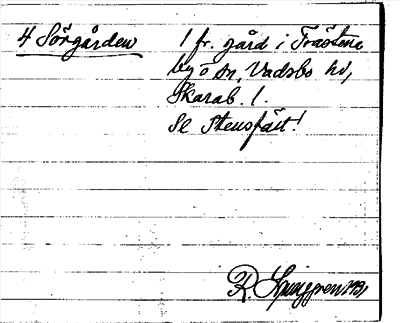 4 Sörgården 1 fr. gård i Trästena
by o sn, Vadsbo hd,
Skarab. l.
Se Stensfält!
R. Ljunggren 1931